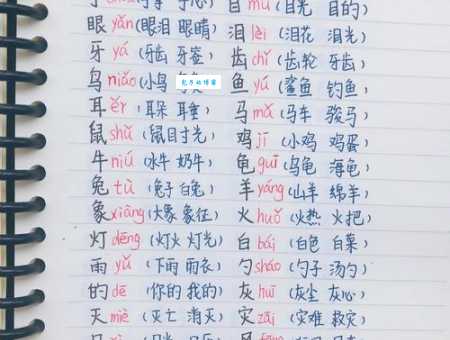 目 mù (目光 目的)
眼 yǎn (眼泪 眼睛) 泪 lèi (泪花 泪光)
牙 yá (牙齿 牙蜜) 齿 chǐ (齿轮 牙齿)
鸟 niǎo (小鸟 鱼 yú (鲨鱼 钓鱼)
兔子的博客
耳 ěr (耳朵 耳垂) 马 mǎ (马车 骏马)
鼠 shǔ (鼠目寸光) 鸡 jī (小鸡 鸡蛋)
牛 niú (水牛 奶牛) 龟 guī (乌龟 海龟)
兔 tù (兔子 白兔) 羊 yáng (山羊 绵羊)
象 xiàng (大象 象征) 火 huǒ (火热 火把)
灯 dēng (灯火 灯光) 白 bái (白色 白菜)
雨 yǔ (下雨 雨衣) 勺 sháo (勺子 汤勺)
的 dē (你的 我的) 灰 huī (灰尘 灰心)
灭 miè (灭亡 消灭) 灾 zāi (灾难 救灾)